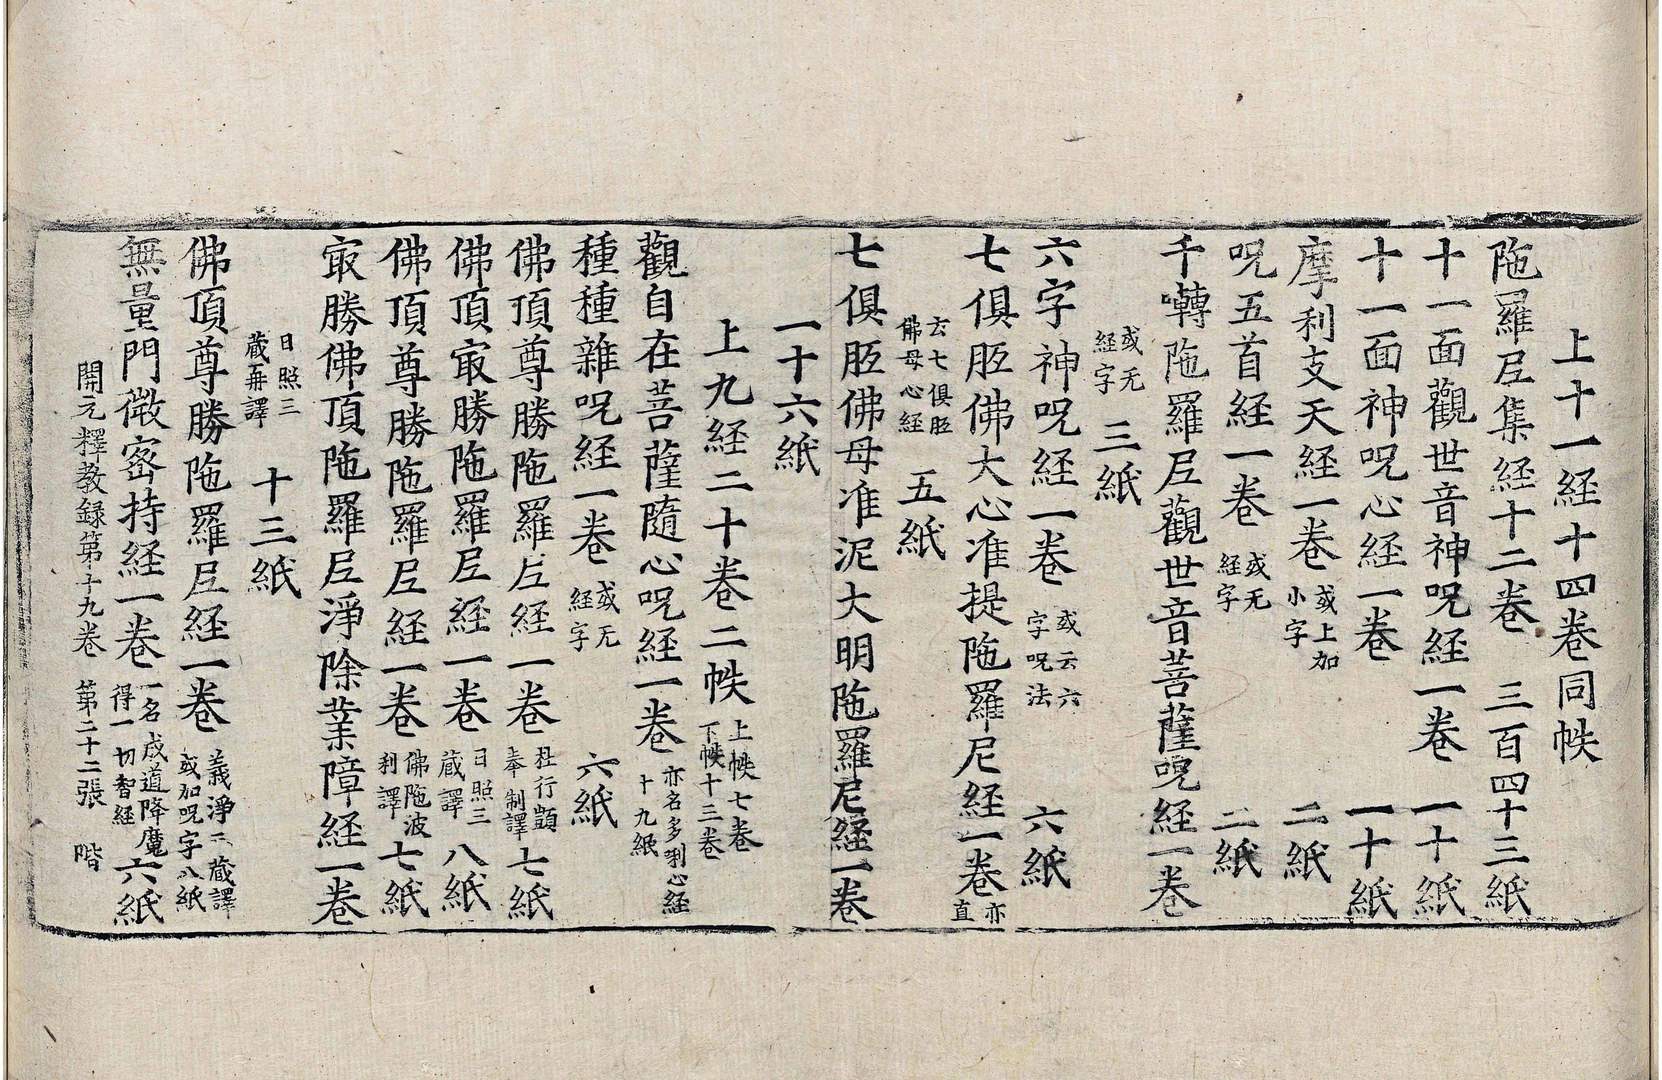 上十一経十四卷同帙
陁羅尼集経十二卷 三百四十三紙
十一面觀世音神呪経一卷 一十紙
十一面神呪心経一卷 一十紙
摩利支天経一卷 或上加小字 二紙
呪五首経一卷 或无経字 二紙
千囀陁羅尼觀世音菩薩呪経一卷
或无経字 三紙
六字神呪経一卷 或云六字呪法 六紙
七俱胝佛大心准提陁羅尼経一卷 亦直
云七俱胝佛母心経 五紙
七俱胝佛母准泥大明陁羅尼経一卷
一十六紙
上九経二十卷二帙 上帙七卷下帙十三卷
觀自在菩薩隨心呪経一卷 亦名多唎心経 十九紙
種種雜呪経一卷 或无経字 六紙
佛頂尊勝陁羅尼経一卷 杜行顗奉制譯 七紙
佛頂㝡勝陁羅尼経一卷 日照三蔵譯 八紙
佛頂尊勝陁羅尼経一卷 佛陁波利譯 七紙
㝡勝佛頂陁羅尼淨除業障経一卷
日照三蔵再譯 十三紙
佛頂尊勝陁羅尼経一卷 義淨三蔵譯或加呪字 八紙
無量門微密持経一卷 一名成道降魔得一切智経 六紙
開元釋教録第十九卷 第二十二張 階